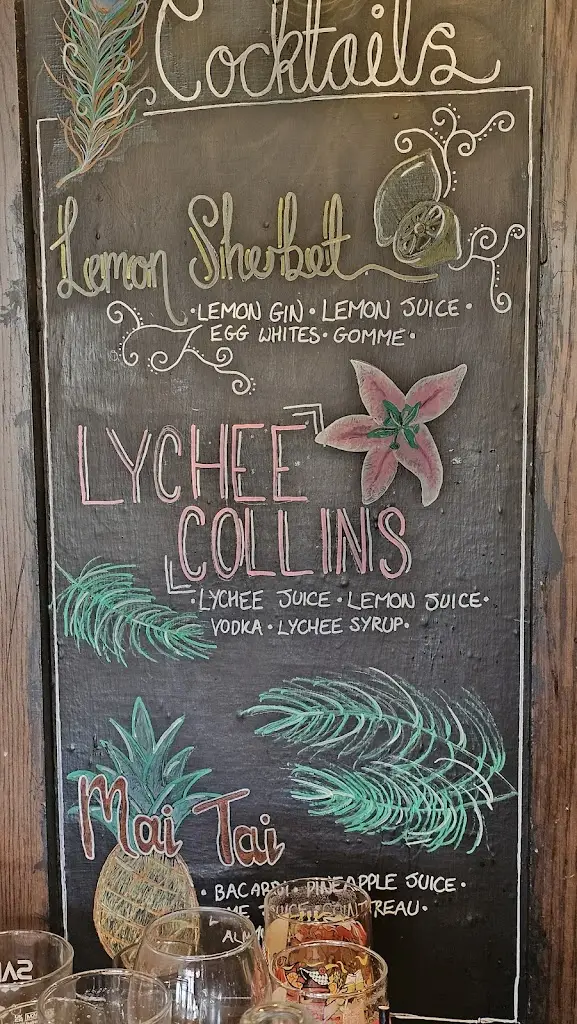 Cocktails
Lemon Sherbet
·LEMON GIN· LEMON JUICE·
EGG WHITES· GOMME·
LYCHEE
COLLINS
·LYCHEE JUICE· LEMON JUICE·
VODKA· LYCHEE SYRUP·
Mai Tai
· BACARDI· PINEAPPLE JUICE·
JUICE COINTREAU·